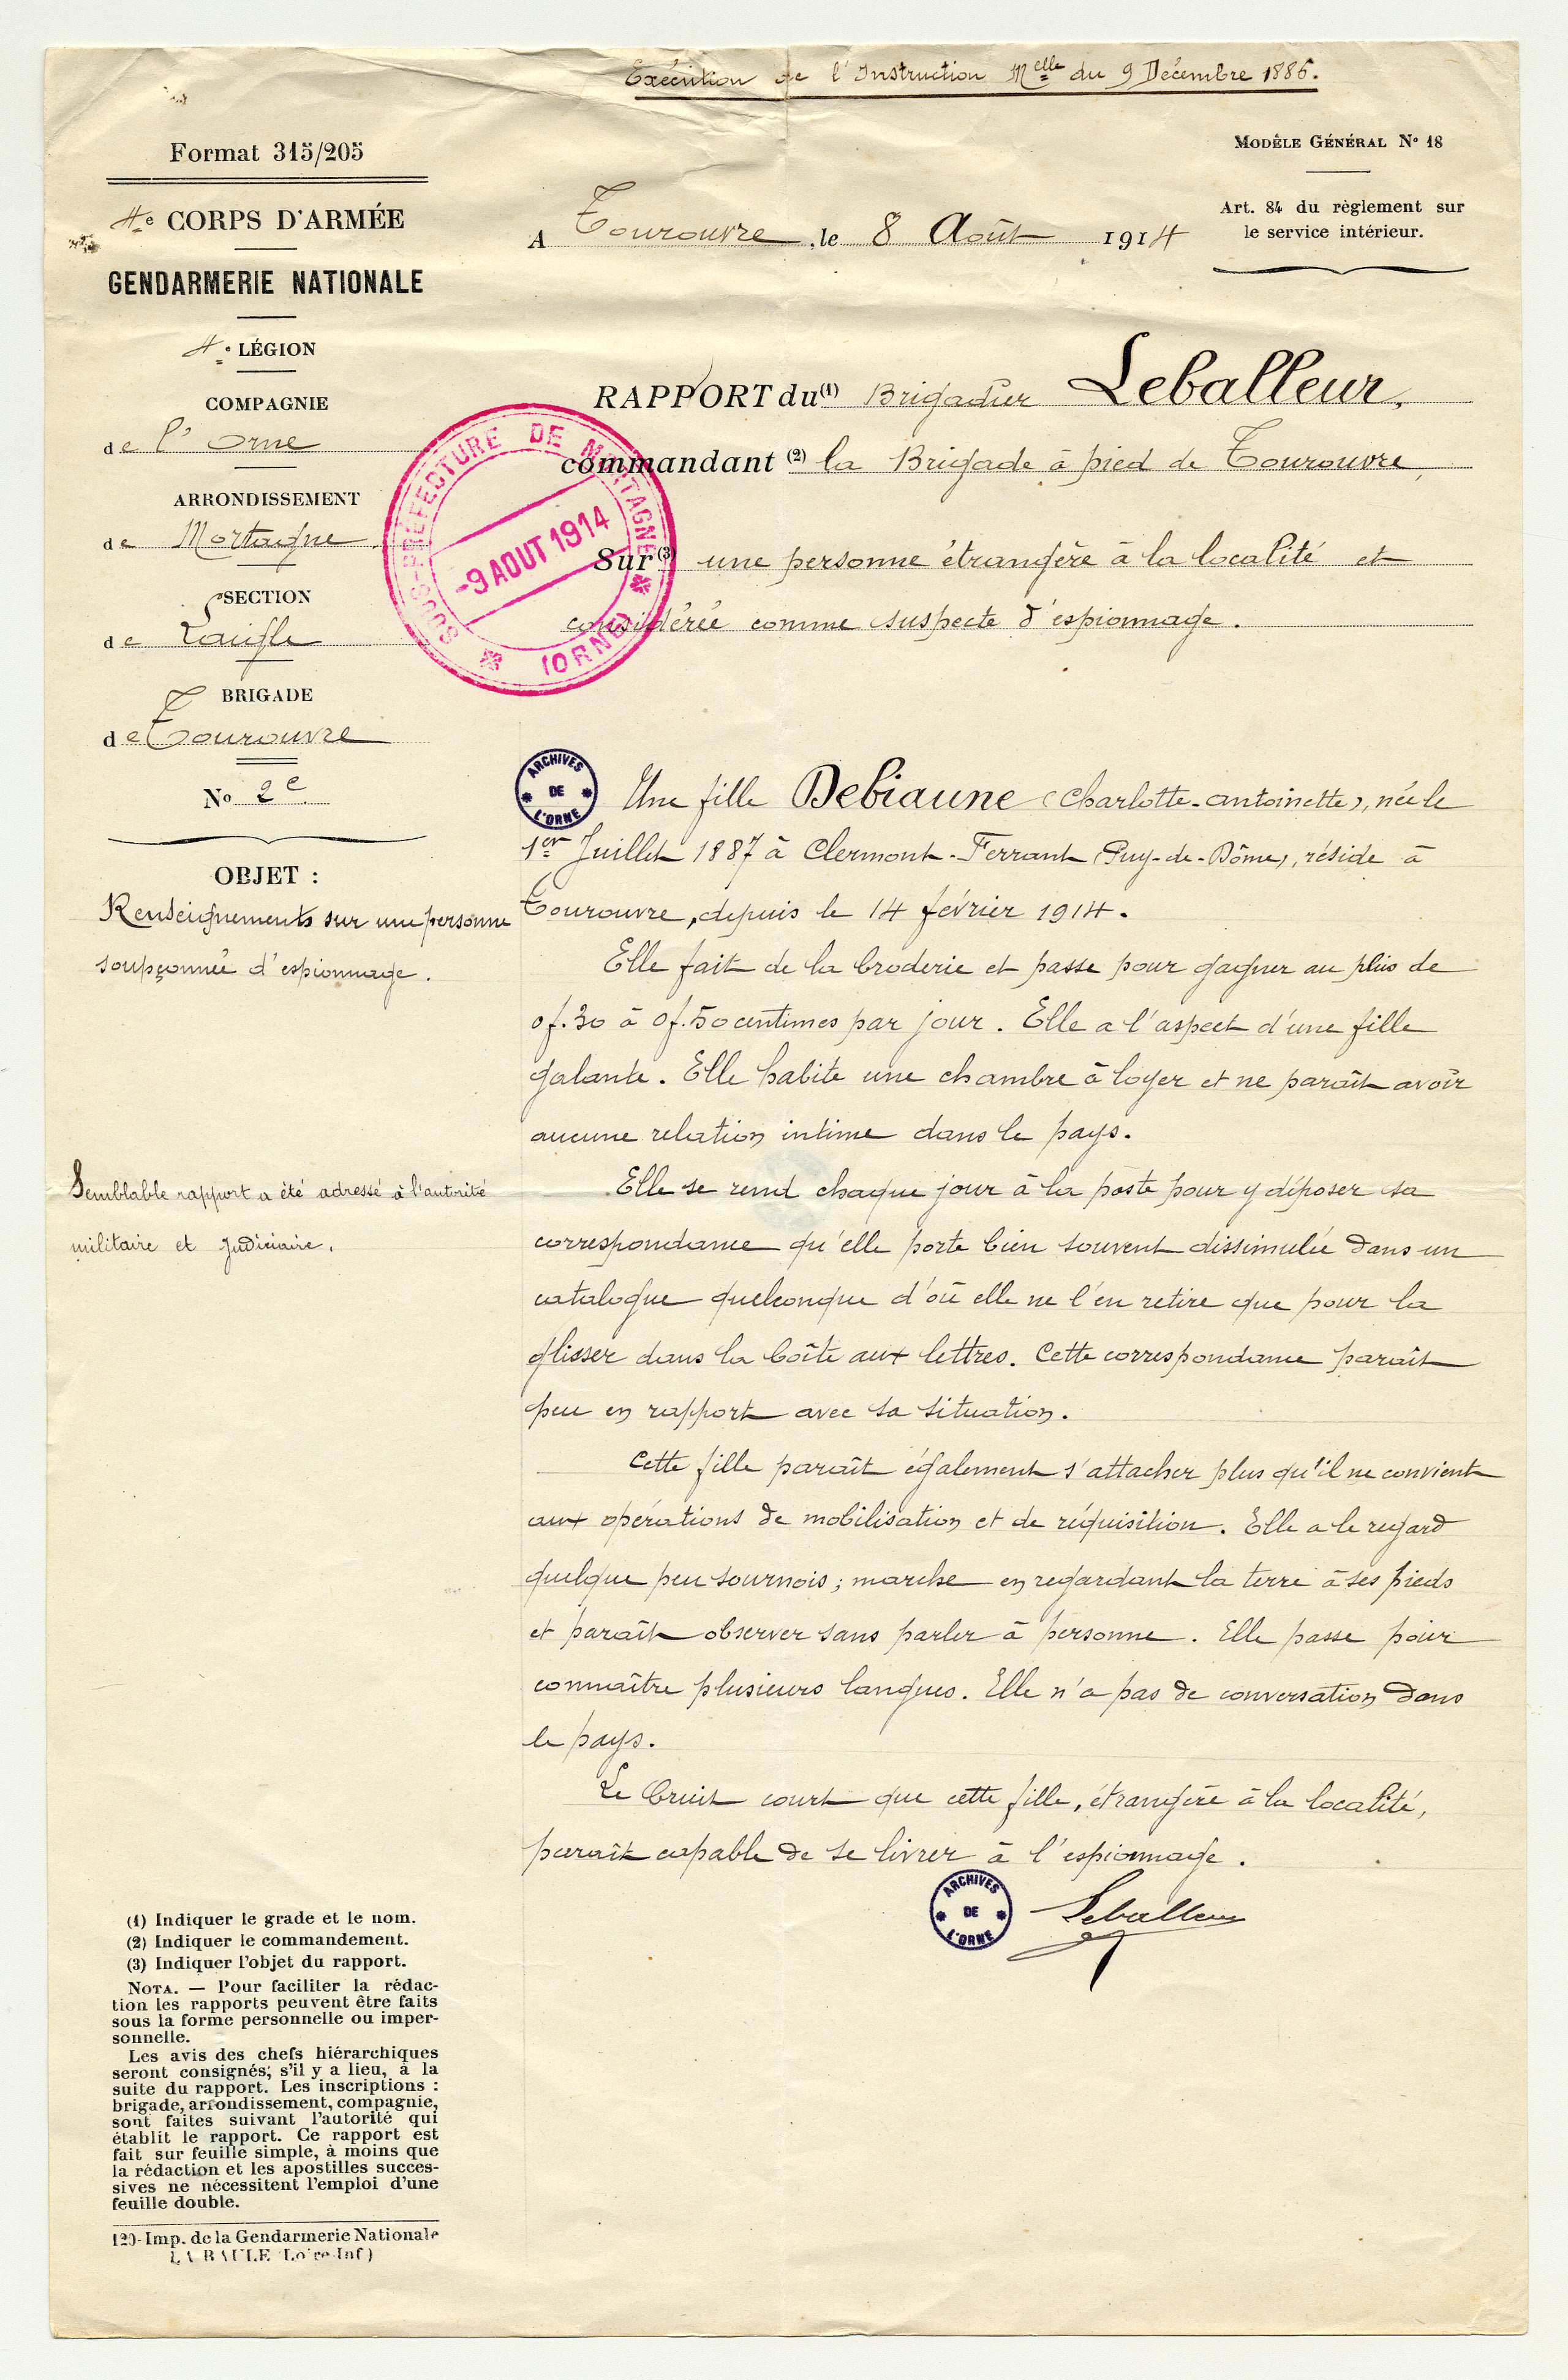 Exécution de l'Instruction Melle du 9 Décembre 1886.
Format 315/205
MODÈLE GÉNÉRAL N° 18
Art. 84 du règlement sur
le service intérieur.
4e CORPS D'ARMÉE
GENDARMERIE NATIONALE
4e LÉGION
COMPAGNIE
de l'Orne
ARRONDISSEMENT
de Mortagne
SECTION
de Laigle
BRIGADE
de Tourouvre
No 2c
OBJET :
Renseignements sur une personne
soupçonnée d'espionnage.
Semblable rapport a été adressé à l'autorité
militaire et judiciaire.
A Tourouvre, le 8 Août 1914
RAPPORT du (1) Brigadier Leballeur,
commandant (2) la Brigade à pied de Tourouvre,
Sur (3) une personne étrangère à la localité et
considérée comme suspecte d'espionnage.
SOUS-PRÉFECTURE DE MORTAGNE
-9 AOUT 1914
(ORNE)
ARCHIVES
DE
L'ORNE
Une fille Debiaune (Charlotte-antoinette), née le
1er Juillet 1887 à Clermont-Ferrant (Puy-de-Dôme), réside à
Tourouvre, depuis le 14 février 1914.
Elle fait de la broderie et passe pour gagner au plus de
0f.30 à 0f.50 centimes par jour. Elle a l'aspect d'une fille
galante. Elle habite une chambre à loyer et ne paraît avoir
aucune relation intime dans le pays.
Elle se rend chaque jour à la poste pour y déposer sa
correspondance qu'elle porte bien souvent dissimulée dans un
catalogue quelconque d'où elle ne l'en retire que pour la
glisser dans la boîte aux lettres. Cette correspondance paraît
peu en rapport avec sa situation.
Cette fille paraît également s'attacher plus qu'il ne convient
aux opérations de mobilisation et de réquisition. Elle a le regard
quelque peu sournois ; marche en regardant la terre à ses pieds
et paraît observer sans parler à personne. Elle passe pour
connaître plusieurs langues. Elle n'a pas de conversation dans
le pays.
Le bruit court que cette fille, étrangère à la localité,
paraît capable de se livrer à l'espionnage.
ARCHIVES
DE
L'ORNE
Leballeur
(1) Indiquer le grade et le nom.
(2) Indiquer le commandement.
(3) Indiquer l'objet du rapport.
NOTA. — Pour faciliter la rédac-
tion les rapports peuvent être faits
sous la forme personnelle ou imper-
sonnelle.
Les avis des chefs hiérarchiques
seront consignés; s'il y a lieu, à la
suite du rapport. Les inscriptions :
brigade, arrondissement, compagnie,
sont faites suivant l'autorité qui
établit le rapport. Ce rapport est
fait sur feuille simple, à moins que
la rédaction et les apostilles succes-
sives ne nécessitent l'emploi d'une
feuille double.
120-Imp. de la Gendarmerie Nationale
LA BAULE (Loire-Inf)